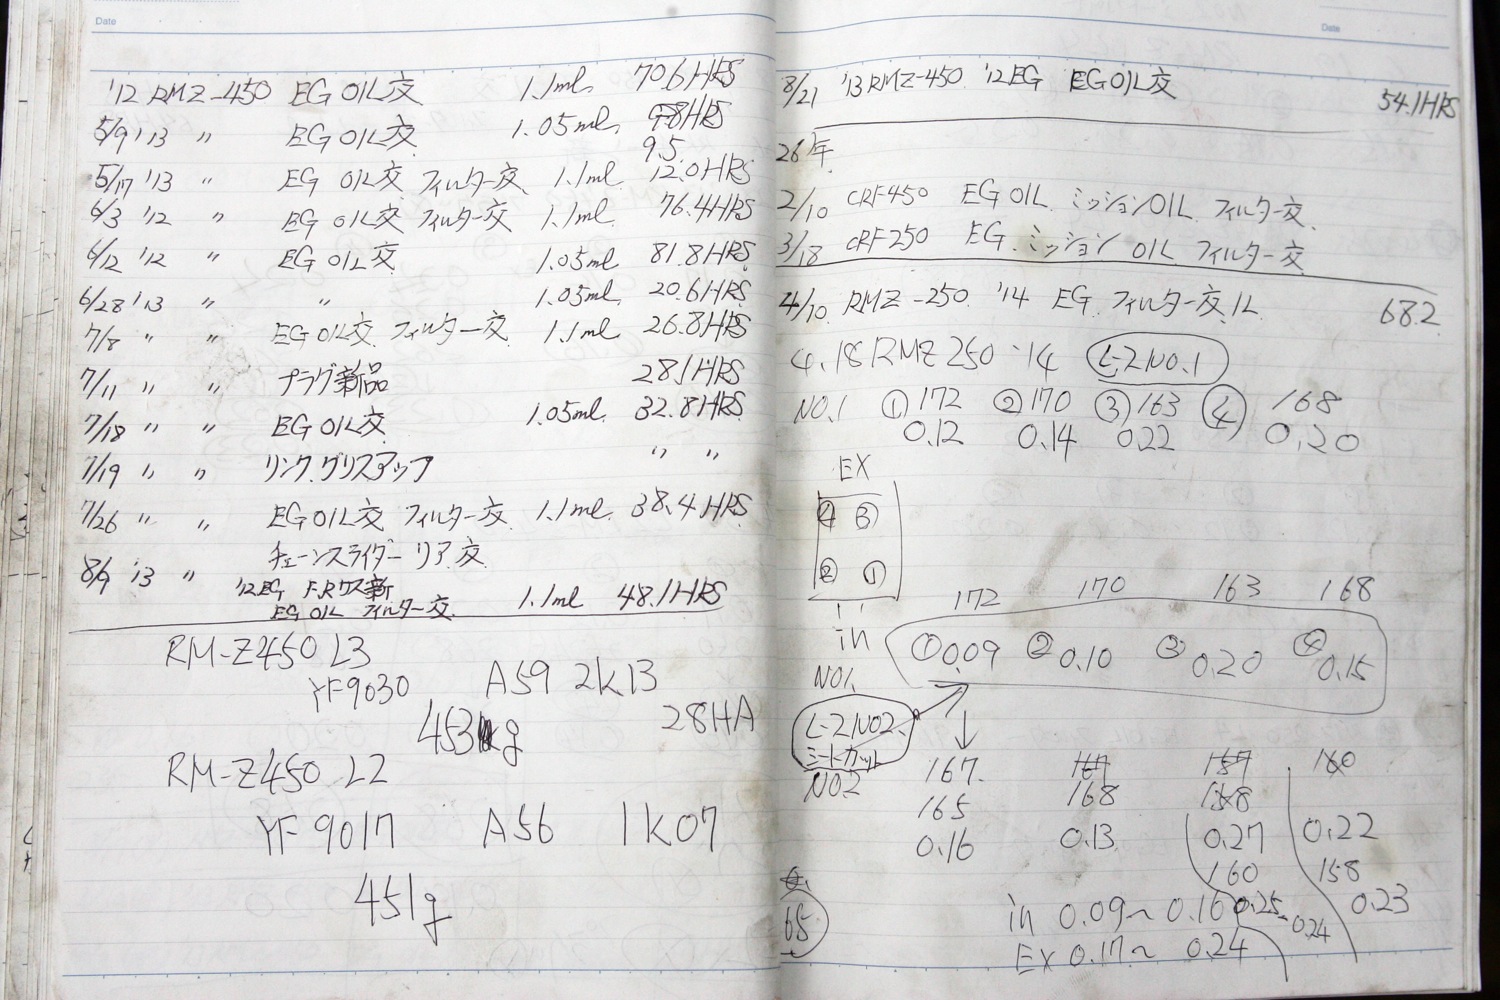 Date
'12 RMZ-450 EG OIL交 1.1ml 70.6HRS
5/9 '13 〃 EG OIL交 1.05ml HRS
9.5
5/17 '13 〃 EG OIL交 フィルター交 1.1ml 12.0HRS
6/3 '12 〃 EG OIL交 フィルター交 1.1ml 76.4HRS
6/12 '12 〃 EG OIL交 1.05ml 81.8HRS
6/28 '13 〃 〃 1.05ml 20.6HRS
7/8 〃 〃 EG OIL交 フィルター交 1.1ml 26.8HRS
7/11 〃 〃 プラグ新品 28.1HRS
7/18 〃 〃 EG OIL交 1.05ml 32.8HRS
7/19 〃 〃 リンク.グリスアップ 〃 〃
7/26 〃 〃 EG OIL交 フィルター交 1.1ml 38.4HRS
チェーンスライダー リア交
8/9 '13 〃 '12EG F.R 新
EG OIL フィルター交 1.1ml 48.1HRS
RM-Z450 L3
YF9030 A59 2K13
453g 28HA
RM-Z450 L2
YF9017 A56 1K07
451g
Date
8/21 '13 RMZ-450 '12EG EGOIL交 54.1HRS
26年
2/10 CRF450 EG OIL ミッションOIL フィルター交
3/18 CRF250 EG.ミッション OIL フィルター交
4/10 RMZ-250 '14 EG フィルター交.1L 68.2
4.18 RMZ250 '14 L-2NO.1
NO.1 ①172 ②170 ③163 ④168
0.12 0.14 0.22 0.20
EX
④ ③
② ①
in
172 170 163 168
①0.09 ②0.10 ③0.20 ④0.15
NO1.
L-2NO2.
シートカット
NO2
167. 167 157 160
165 168 158
0.16 0.13 0.27 0.22
160 158
0.25 0.24 0.23
in 0.09~0.16
EX 0.17~0.24
65